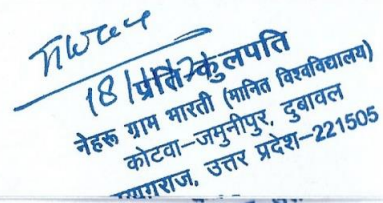 18/
प्रति-कुलपति
नेहरू ग्राम भारती (मानित विश्वविद्यालय)
कोटवा-जमुनीपुर, दुबावल
प्रयागराज, उत्तर प्रदेश-221505